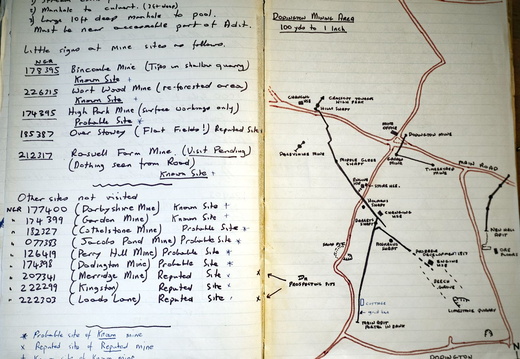 2) Manhole to culvert. (3ft deep)
3) Large 10ft deep manhole to pool.
Must be near accessable part of Adit.
Little signs at mine sites as follows.
NGR
178395 Bincombe Mine (Tips in shallow quarry)
Known Site +
226215 Wort Wood Mine (re-forested area)
Known Site +
174395 High Park Mine (surface workings only)
Probable Site *
185387 Over Stowey (Flat Fields!) Reputed Site
212317 Roswell Farm Mine (Visit Pending)
(Nothing seen from Road)
Known Site +
Other sites not visited
NGR 177400 (Derbyshire Mine) Known Site +
174399 (Garden Mine) Known Site +
182327 (Cothelstone Mine) Probable Site *
077383 (Jacobs Pond Mine) Probable Site *
126419 (Perry Hill Mine) Probable Site *
174398 (Dodington Mine) Probable Site *
207341 (Merridge Mine) Reputed Site x
222299 (Kingston) Reputed Site
222303 (Loads Lane) Reputed Site x
* Probable site of Known mine
x Reputed site of Reputed mine
DODINGTON MINING AREA
100 YDS TO 1 INCH
MINE OFFICE
DODINGTON MINE
MAIN ROAD
DERBYSHIRE MINE
MIDDLE CLOSE SHAFT
NEW HALL ADIT
ORE FLOORS
ENGINE HSE
BEECH GROVE
LIMESTONE QUARRY
COTTAGE
MAIN ADIT
PORTAL IN BANK
DR PROSPECTING PITS
DODINGTON
N